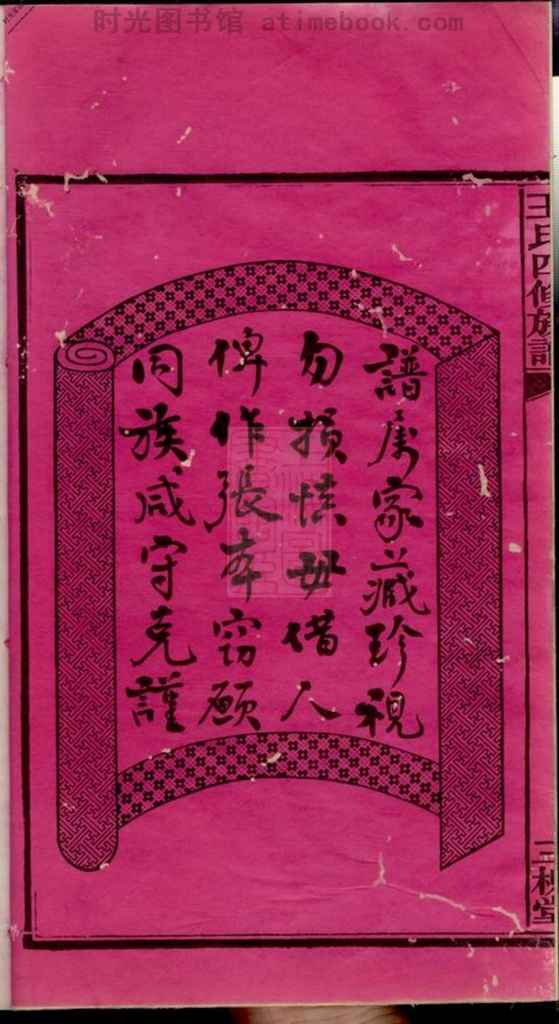 时光图书馆 atimebook.com
王氏四修族譜
三槐堂
譜属家藏珍視
勿損慎毋借人
俾作張夲窃願
同族咸守克謹